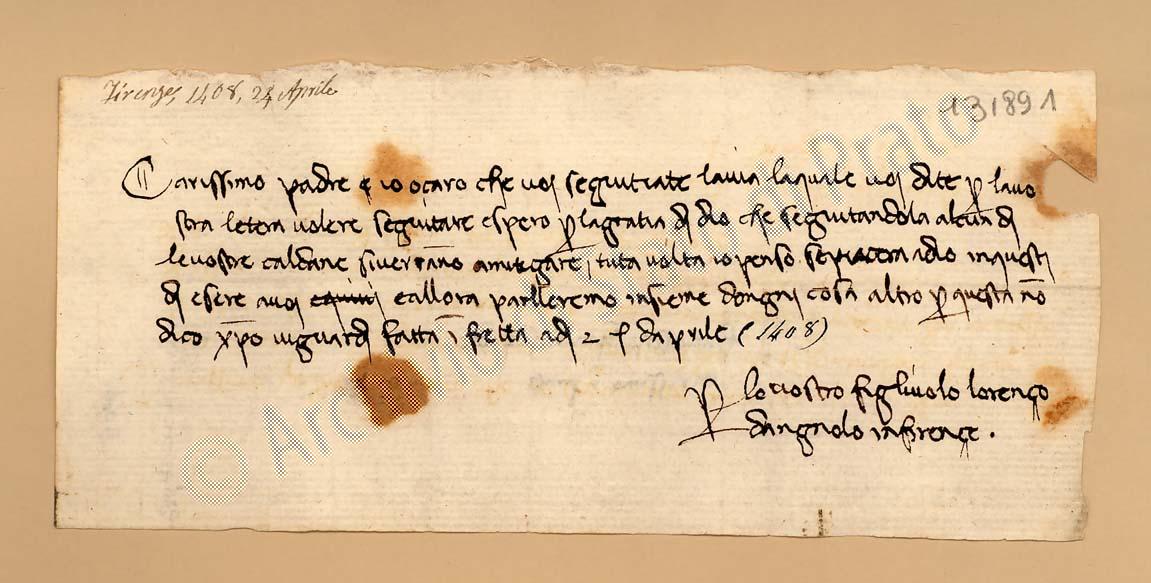 Firenze, 1408, 24 Aprile
131891
Carissimo padre e io o çaro che voi seguitiate lavia laquale voi dite p lavo
stra letera volere seguitare espero p lagratia di dio che seguitandola alcuna di
levostre caldane siverrano amitegare tuta volta io penso sepiacera adio inquesti
di esere avoi eallora parlleremo insieme dongni cosa altro p questa no
dico xpo viguardi fatta i fretta adi 2 daprile (1408)
P lo vostro figliuolo lorenço
dangnolo infirençe .
© Archivio di Stato di Prato